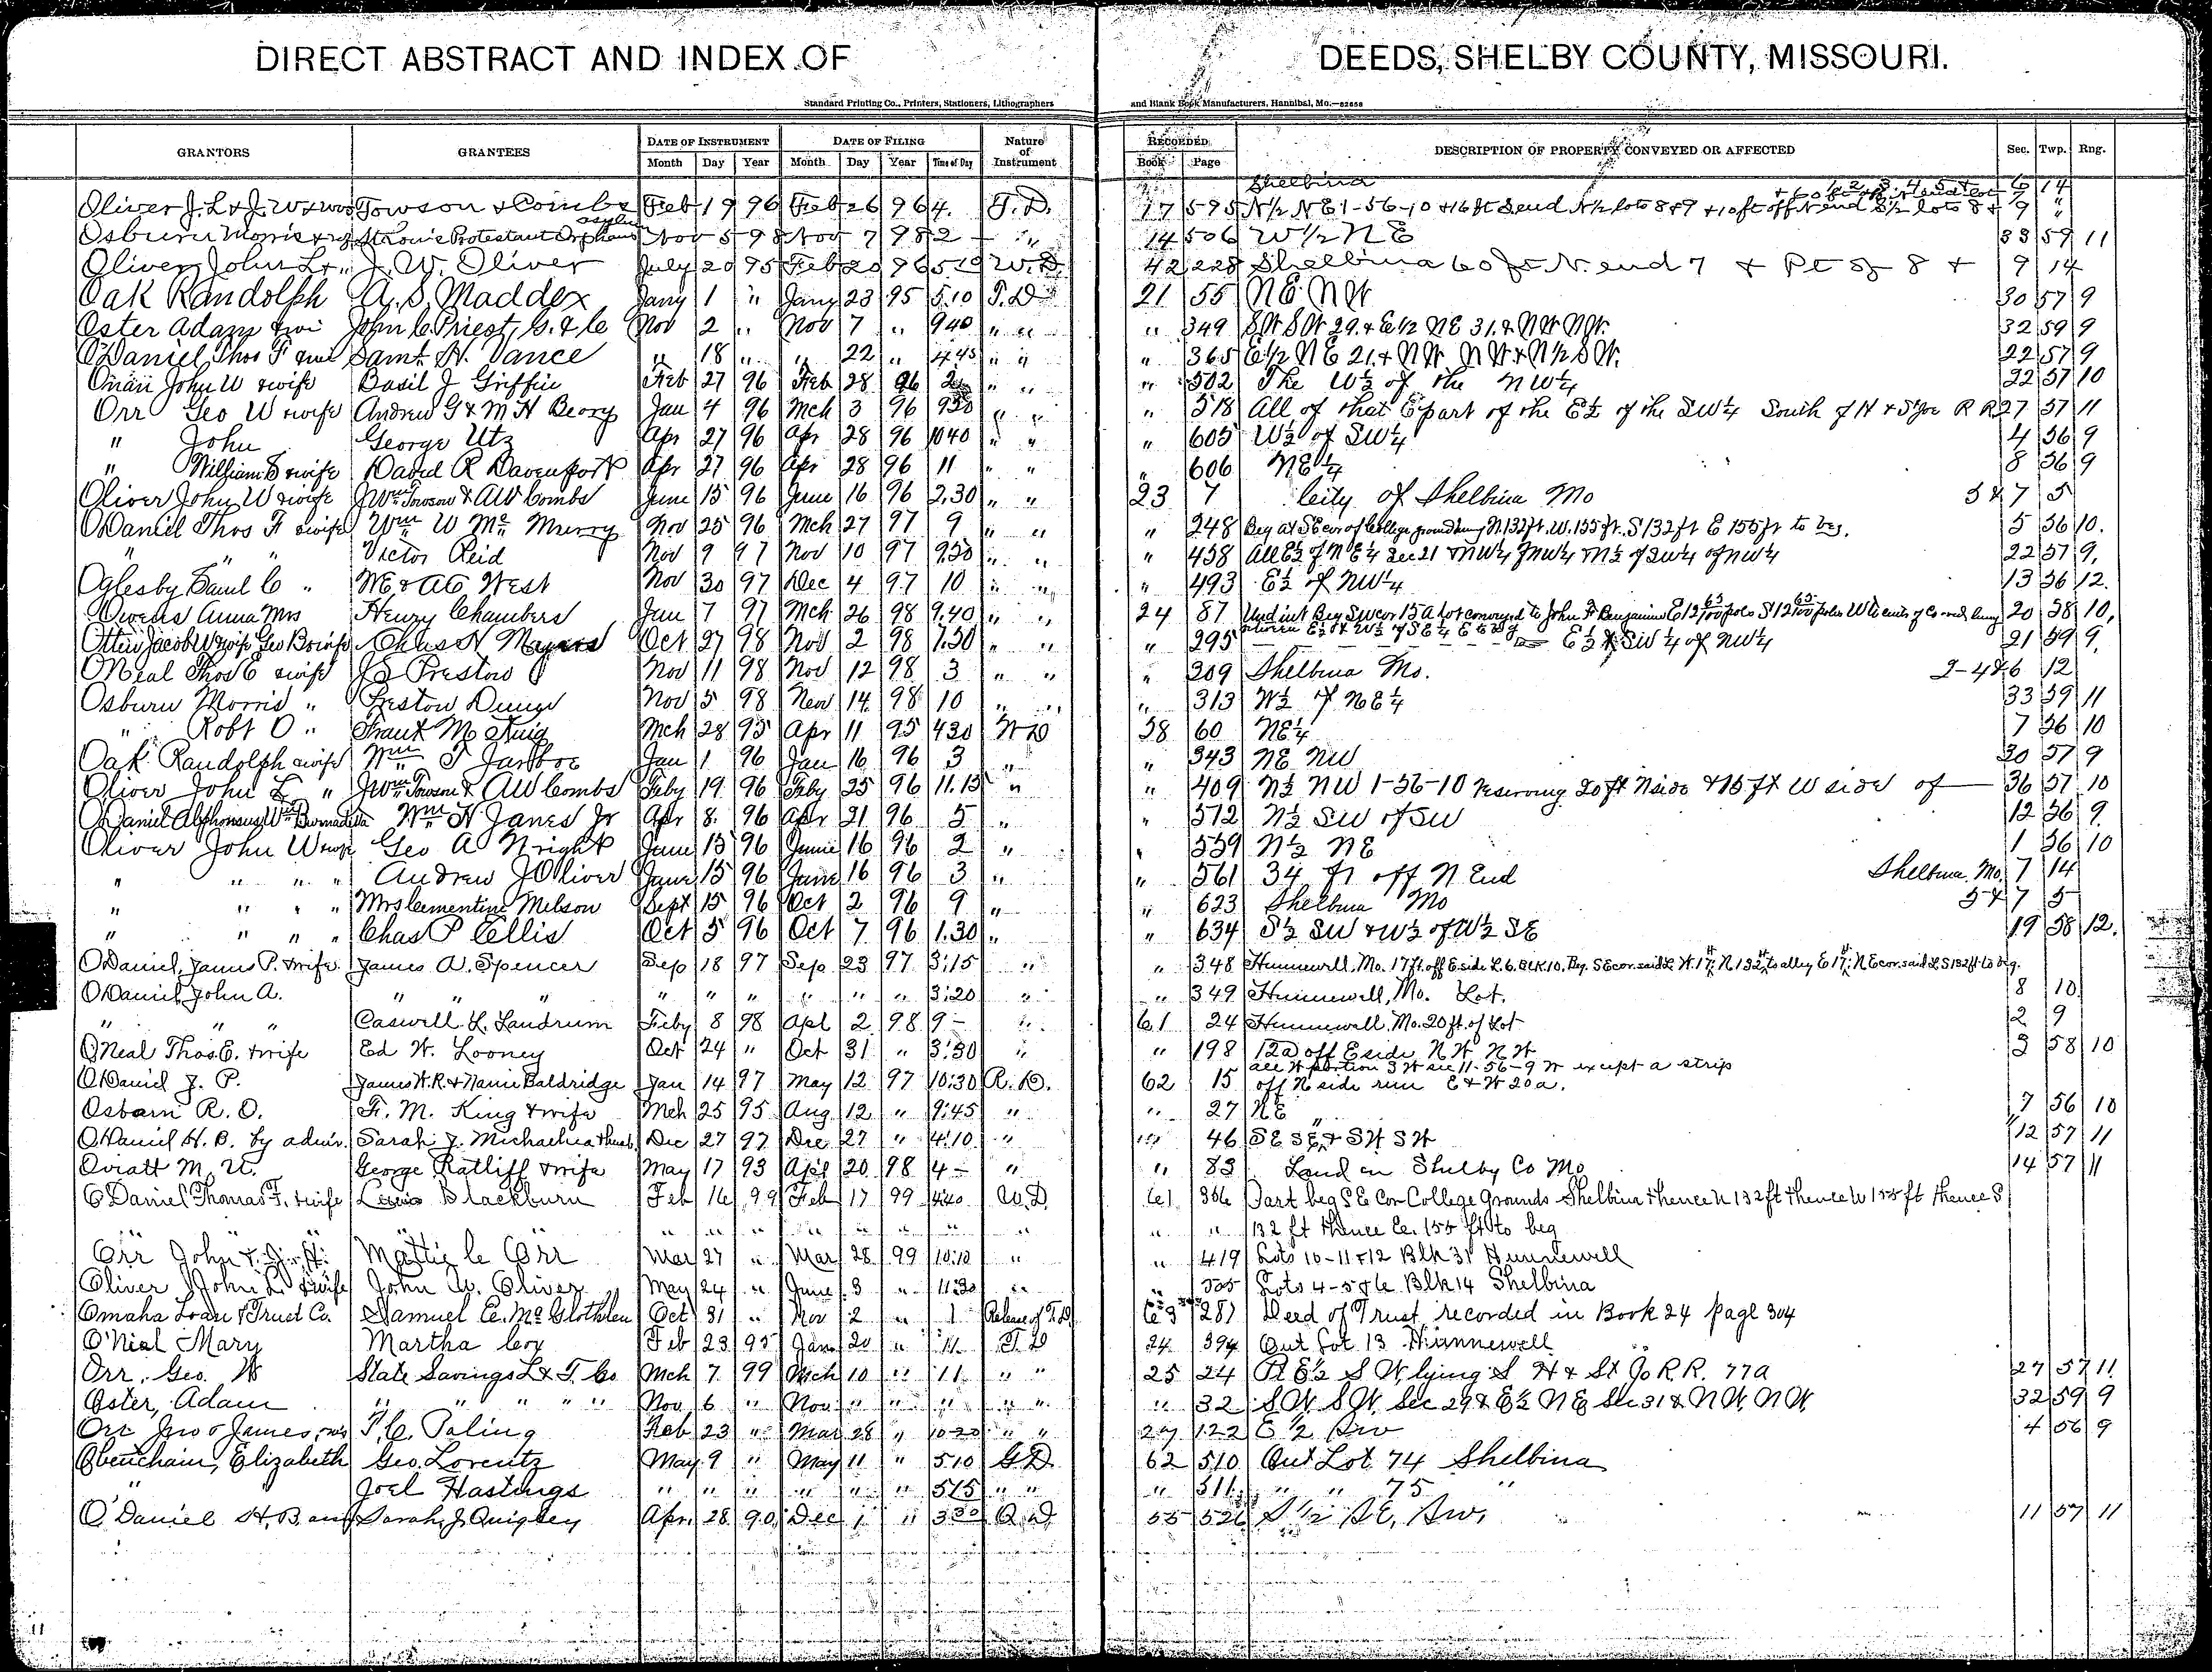 DIRECT ABSTRACT AND INDEX OF DEEDS, SHELBY COUNTY, MISSOURI.
Standard Printing Co., Printers, Stationers, Lithographers and Blank Book Manufacturers, Hannibal, Mo.—82658
GRANTORS GRANTEES DATE OF INSTRUMENT DATE OF FILING Nature of Instrument RECORDED DESCRIPTION OF PROPERTY CONVEYED OR AFFECTED Sec. Twp. Rng.
Month Day Year Month Day Year Time of Day Book Page
Shelbina
Oliver J. L & J. W & wvs Towson & Combs Feb 19 96 Feb 26 96 4. T. D. 17 595 N½ NE 1-56-10 & 16 ft S end N½ lots 8 & 9 + 10 ft off N end S½ lots 8 & 9
Osburn Morris & wf Protestant Orphans asylum Nov 5 98 Nov 7 98 2 " 14 506 W½ NE 33 59 11
Oliver John L + " J. W. Oliver July 20 95 Feb 20 96 5 10 W. D. 42 228 Shelbina 60 ft N. end 7 & Pt of 8 + 9 14
Oak Randolph A. S. Maddex Jany 1 " Jany 23 95 5.10 T. D 21 55 NE. NW 30 57 9
Oster Adam & wi John C. Priest, G. & C Nov 2 " Nov 7 " 9 40 " " " 349 SW SW 29. & E½ NE 31. & NW NW. 32 59 9
O'Daniel Thos F & wi Saml. H. Vance " 18 " " 22 " 4.45 " " " 365 E½ NE 21. & NW NW & N½ SW. 22 57 9
John W & wife Basil J Griffin Feb 27 96 Feb 28 96 2 " " " 502 The W½ of the NW¼ 22 57 10
Orr Geo W & wife Andrew G & M H Beory Jan 4 96 Mch 3 96 9 30 " " " 518 All of that E part of the E½ of the SW¼ South of H & St Joe R R 27 57 11
" John George Utz Apr 27 96 Apr 28 96 10 40 " " " 605 W½ of SW¼ 4 56 9
" William E & wife David R Davenport Apr 27 96 Apr 28 96 11 " " " 606 NE¼ 8 56 9
Oliver John W & wife J Wm Towson & A W Combs June 15 96 June 16 96 2.30 " " 23 7 City of Shelbina Mo 5 & 7 5
O'Daniel Thos F & wife Wm W Mc Murry Nov 25 96 Mch 27 97 9 " " " 248 Beg at SE cor of College ground running N. 132 ft. W. 155 ft. S 132 ft E 155 ft to beg. 5 56 10.
" " " Victor Reid Nov 9 97 Nov 10 97 9.30 " " " 458 All E½ of NE¼ Sec 21 & NW¼ of NW¼ N½ of SW¼ of NW¼ 22 57 9,
Oglesby Saml C " W E & A C West Nov 30 97 Dec 4 97 10 " " " 493 E½ of NW¼ 13 56 12.
Owens Anna Mrs Henry Chambers Jan 7 97 Mch 26 98 9.40 " " 24 87 Und int Beg SW cor 15 A lot conveyed to John F Benjamin 20 58 10,
Otter Jacob W & wife Geo B & wife Chas N Mayers Oct 27 98 Nov 2 98 1.30 " " " 295 E½ & SW¼ of NW¼ 21 59 9,
O'Neal Thos E & wife J S Preston Nov 11 98 Nov 12 98 3 " " " 309 Shelbina Mo. 2-4 & 6 12
Osburn Morris " Preston Dunn Nov 5 98 Nov 14 98 10 " " " 313 W½ of NE¼ 33 59 11
" Robt O " Frank M King Mch 28 95 Apr 11 95 4 30 W D 58 60 NE¼ 7 56 10
Oak Randolph & wife Wm T Jarboe Jan 1 96 Jan 16 96 3 " " 343 NE NW 30 57 9
Oliver John L " J Wm Towson & A W Combs Feby 19 96 Feby 25 96 11.15 " " 409 N½ NW 1-56-10 reserving 20 ft N side & 16 ft W side of — 36 57 10
O'Daniel Alphonsus Wm Bernadetta Wm H Janes Jr Apr 8 96 Apr 21 96 5 " " 512 N½ SW of SW 12 56 9
Oliver John W & wife Geo A Wright June 15 96 June 16 96 2 " " 559 N½ NE 1 56 10
" " " " Andrew J Oliver June 15 96 June 16 96 3 " " 561 34 ft off N End Shelbina Mo. 7 14
" " " " Mrs Clementine Melson Sept 15 96 Oct 2 96 9 " " 623 Shelbina Mo 5 & 7 5
" " " " Chas P Ellis Oct 5 96 Oct 7 96 1.30 " " 634 S½ SW & W½ of W½ SE 19 58 12.
O'Daniel, James P. & wife James A. Spencer Sep 18 97 Sep 23 97 3:15 " 348 Hunnewell, Mo. 17 ft. off E side L. 6. Blk. 10. Beg. SE cor. said L. W. 17 ft; N 132 ft to alley E 17 ft; NE cor. said L S 132 ft to beg.
O'Daniel John A. " " " " " " " " " 3:20 " " 349 Hunnewell, Mo. Lot. 8 10
" " " Caswell L. Landrum Feby 8 98 Apl 2 98 9 - " 61 24 Hunnewell, Mo. 20 ft. of Lot 2 9
O'Neal Thos. E. & wife Ed W. Looney Oct 24 " Oct 31 " 3:30 " " 198 12a off E side NW NW 3 58 10
O'Daniel J. P. James W. R. & Nanie Baldridge Jan 14 97 May 12 97 10:30 R. D. 62 15 all W portion SW sec 11-56-9 W except a strip
off N side run E & W 20 a.
Osbarn R. O. Fr. M. King & wife Mch 25 95 Aug 12 " 9:45 " " 27 NE 7 56 10
O'Daniel H. B. by admr. Sarah J. Michael & husb Dec 27 97 Dec 27 " 4:10 " " 46 SE SE & SW SW 12 57 11
Oviatt M. U. George Ratliff & wife May 17 93 Apl 20 98 4 - " " 83 Land in Shelby Co Mo 14 57 11
O'Daniel Thomas F. & wife Lewis Blackburn Feb 16 99 Feb 17 99 4:40 W. D 61 366 Part beg SE Cor College Grounds Shelbina thence N 132 ft thence W 155 ft thence S
" " " " " " " " " " 132 ft thence E. 155 ft to beg
Orr John Mattie C Orr Mar 27 " Mar 28 99 10:10 " " 419 Lots 10-11 & 12 Blk 31 Hunnewell
Oliver John L. & wife John W. Oliver May 24 " June 3 " 11:30 " " 535 Lots 4-5 & 6 Blk 14 Shelbina
Omaha Loan & Trust Co. Samuel E. Mc Glothlen Oct 31 " Nov 2 " 1 Release of T. D 63 281 Deed of Trust recorded in Book 24 page 304
O'Nial Mary Martha Cox Feb 23 95 Jan 20 " 11. T. D 24 394 Out Lot 13 Hunnewell
Orr. Geo. W State Savings L & T. Co Mch 7 99 Mch 10 " 11 " " 25 24 Pt E½ SW, lying S H & St Jo R. R. 77a 27 57 11.
Oster, Adam " " " " Nov 6 " Nov " " " " " 32 SW SW. Sec 29 & E½ NE Sec 31 & NW, NW, 32 59 9
Orr Jno & James, T. C. Paling Feb 23 " Mar 28 " 10 20 " " 27 122 E½ Sw 4 56 9
Obenchain, Elizabeth Geo. Lorentz May 9 " May 11 " 5 10 G D. 62 510 Out Lot 74 Shelbina
" Joel Hastings " " " " " " 5 15 " " " 511 " " 75 "
O'Daniel H. B and Sarah J. Quigley Apr. 28 90 Dec 1 " 3 30 Q. D 55 526 S½ SE, Sw, 11 57 11